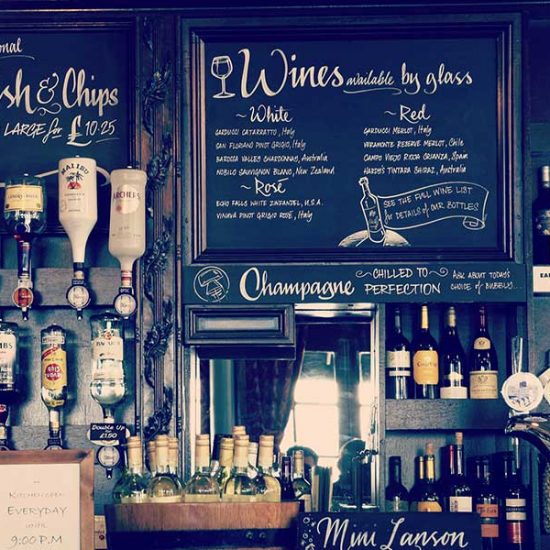 onal
sh & Chips
LARGE for £10.25
Wines available by glass
~White
CARDUCCI CATARRATTO, Italy
SAN FLORIANO PINOT GRIGIO, Italy
BAROCCA VALLEY CHARDONNAY, Australia
NOBILO SAUVIGNON BLANC, New Zealand
~Rosé
ECHO FALLS WHITE ZINFANDEL, U.S.A.
VINUVA PINOT GRIGIO ROSÉ, Italy
~Red
CARDUCCI MERLOT, Italy
VERAMONTE RESERVE MERLOT, Chile
CAMPO VIEJO RIOJA CRIANZA, Spain
HARDYS TINTARA SHIRAZ, Australia
SEE THE FULL WINE LIST
for DETAILS of OUR BOTTLES
Champagne ~CHILLED TO~ PERFECTION
ASK ABOUT TODAY'S
CHOICE of BUBBLY...
MALIBU
ARCHERS
BACARDI
Double Up
£1.50
KITCHEN OPEN
EVERYDAY
UNTIL
9:00 P.M
Mini Lanson